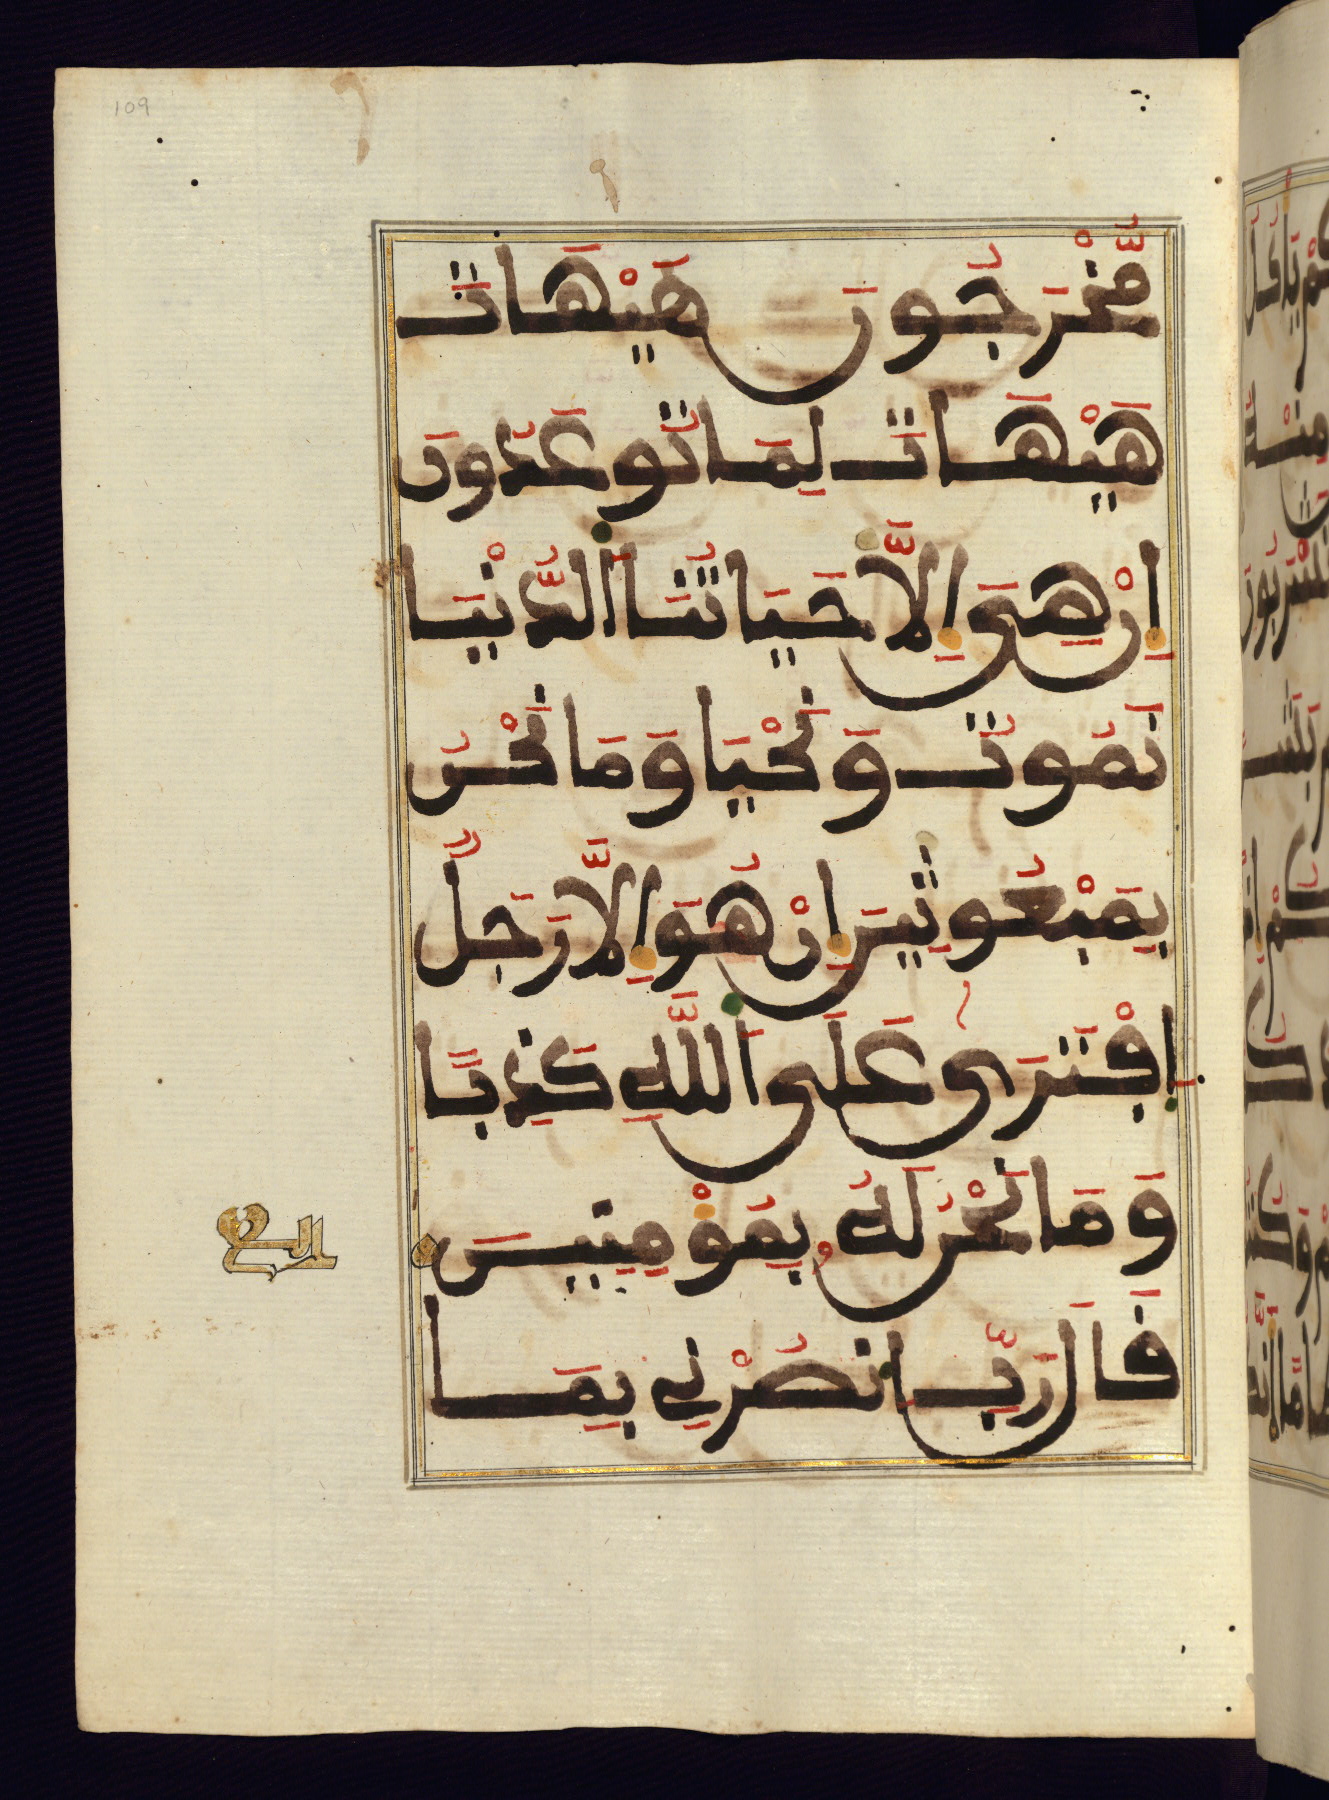 109
مُّخْرَجُونَ هَيْهَاتَ
هَيْهَاتَ لِمَا تُوعَدُونَ
إِنْ هِيَ إِلَّا حَيَاتُنَا الدُّنْيَا
نَمُوتُ وَنَحْيَا وَمَا نَحْنُ
بِمَبْعُوثِينَ إِنْ هُوَ إِلَّا رَجُلٌ
افْتَرَى عَلَى اللَّهِ كَذِبًا
وَمَا نَحْنُ لَهُ بِمُؤْمِنِينَ
قَالَ رَبِّ انصُرْنِي بِمَا